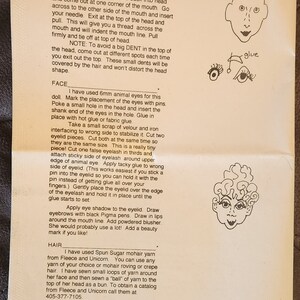 come out at one corner of the mouth. Go
across to the other side of the mouth and insert
your needle. Exit at the top of the head and
pull. This will give you a thread across the
mouth and will indent the mouth line. Pull
firmly and tie off at top of head.
NOTE: To avoid a big DENT in the top of
the head, come out at different spots each time
you exit the top. These small dents will be
covered by the hair and won't distort the head
shape.
glue
FACE
I have used 6mm animal eyes for this
doll. Mark the placement of the eyes with pins.
Poke a small hole in the head and insert the
shank end of the eyes in the hole. Glue in
place with hot glue or fabric glue.
Take a small scrap of velour and iron
interfacing to wrong side to stabilize it. Cut two
eyelid pieces. Cut both at the same time so
they are the same size. This is a really tiny
piece! Cut one false eyelash in thirds and
attach sticky side of eyelash around upper
edge of animal eye. Apply tacky glue to wrong
side of eyelid. (This works easiest if you stick a
pin into the eyelid so you can hold it with the
pin instead of getting glue all over your
fingers.) Gently place the eyelid over the edge
of the eyelash and hold it in place until the
glue starts to set.
Apply eye shadow to the eyelid. Draw
eyebrows with black Pigma pens. Draw in lips
around the mouth line. Add powdered blusher.
She would probably use a lot! Add a beauty
mark if you like!
HAIR
I have used Spun Sugar mohair yarn
from Fleece and Unicorn. You can use any
yarn of your choice or mohair roving or crepe
hair. I have sewn small loops of yarn around
her face and then sewn a "ball" of yarn to the
top of her head as a bun. To obtain a catalog
from Fleece and Unicorn call them at
405-377-7105